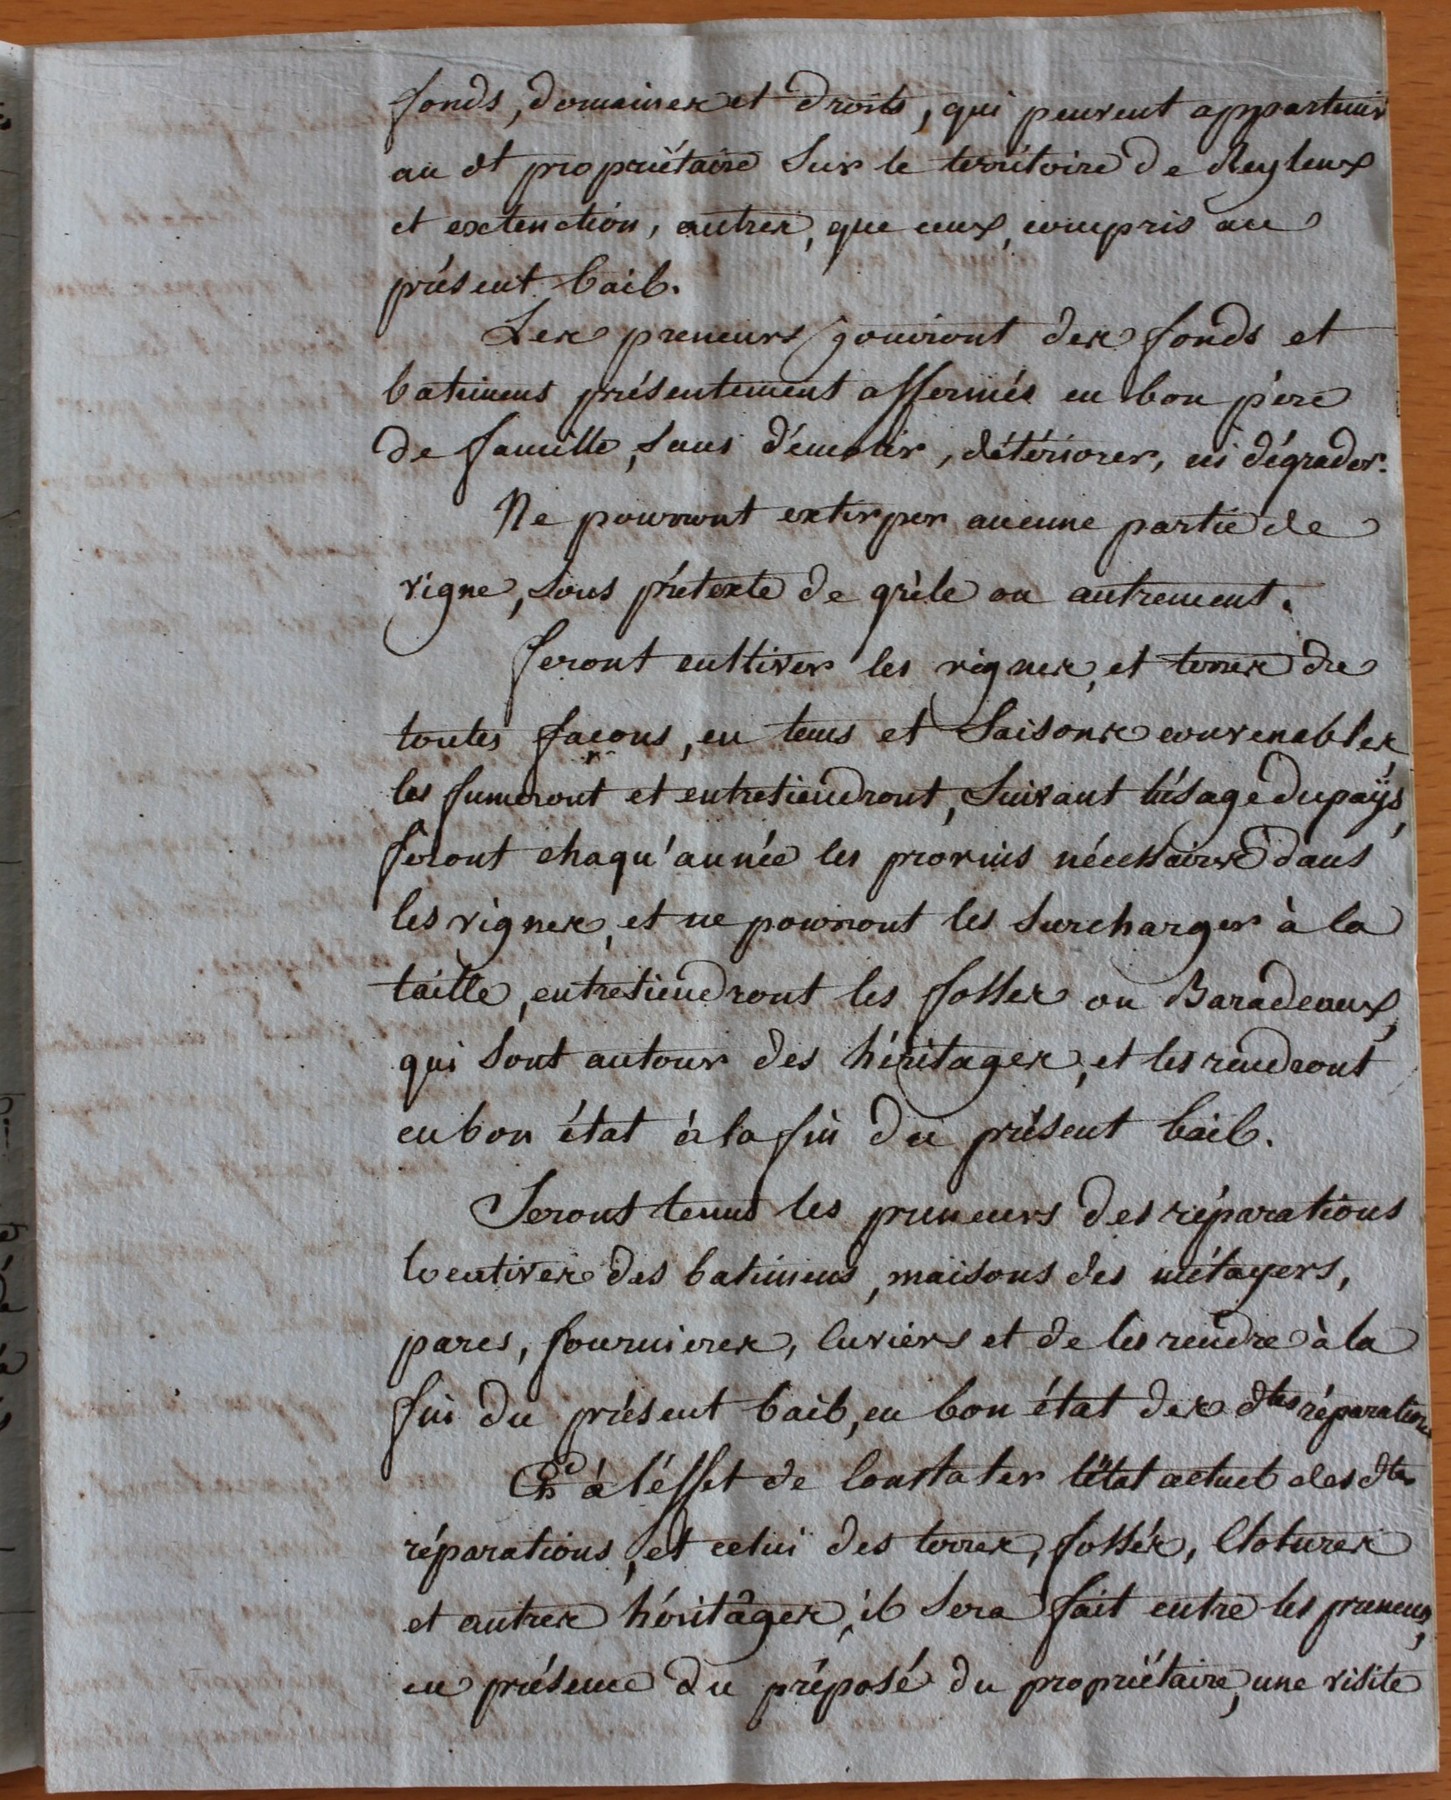 fonds, domaines et droits, qui peuvent appartenir
au dt propriétaire sur le territoire de Reyleux
et extenction, autres, que ceux, compris au
présent bail.
Les preneurs jouiront des fonds et
batimens présentement affermés en bon père
de famille, sans démolir, détériorer, ni dégrader.
Ne pourront extirper aucune partie de
vigne, sous prétexte de grèle ou autrement.
feront cultiver les vignes, et terres de
toutes façons, en tems et saisons convenables,
les fumeront et entretiendront, suivant l'usage du païs,
feront chaqu'année les provins nécessaires dans
les vignes, et ne pourront les surcharger à la
taille, entretiendront les fosses ou Baradeaux,
qui sont autour des héritages, et les rendront
en bon état à la fin du présent bail.
Seront tenus les preneurs des réparations
locatives des batimens, maisons des métayers,
parcs, fournieres, cuviers et de les rendre à la
fin du présent bail, en bon état des dtes réparations
Et à l'effet de constater l'état actuel des dtes
réparations, et celui des terres, fossés, clotures
et autres héritâges, il sera fait entre les preneurs,
en présence du préposé du propriétaire, une visite